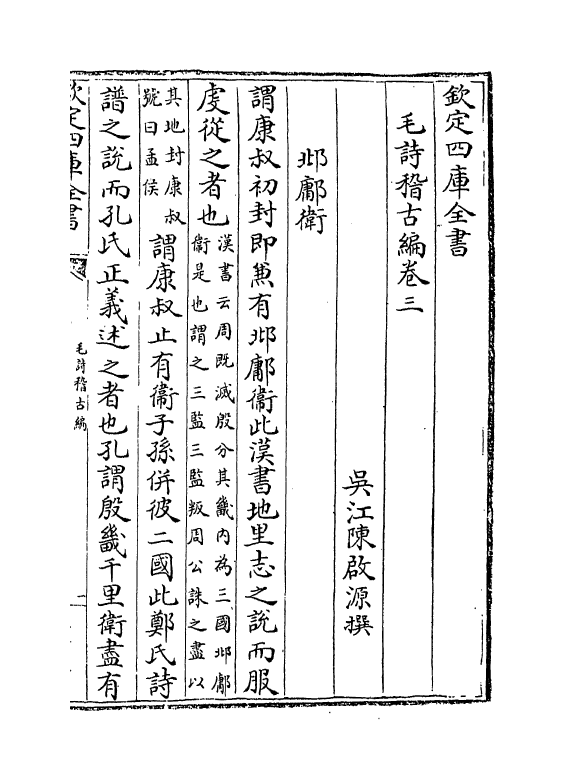 欽定四庫全書
毛詩稽古編卷三
吳江陳啟源撰
邶鄘衛
謂康叔初封即兼有邶鄘衛此漢書地里志之說而服
虔從之者也漢書云周既滅殷分其畿内為三國邶鄘
衛是也謂之三監三監叛周公誅之盡以
其地封康叔
號曰孟侯謂康叔止有衛子孫併彼二國此鄭氏詩
譜之說而孔氏正義述之者也孔謂殷畿千里衛盡有
欽定四庫全書
毛詩稽古編
一